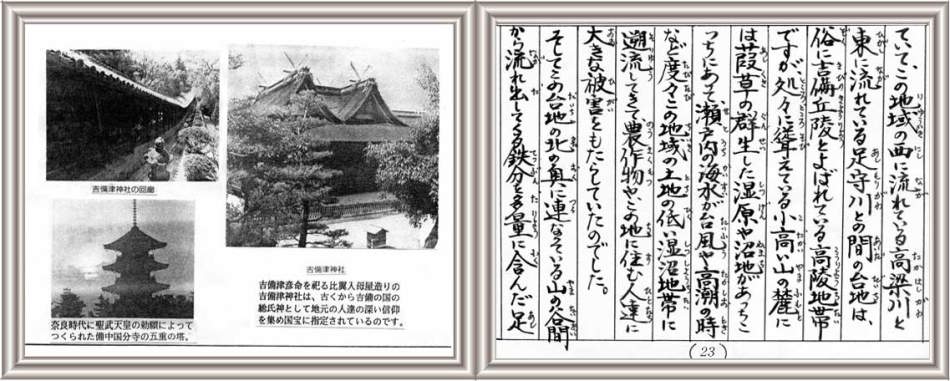 ていて、この地域の西に流れている高梁川と
東に流れている足守川との間の台地は、
俗に吉備丘陵とよばれている高陵地帯
ですが処々に聳えている小高い山の麓に
は葭草の群生した湿原や沼地があっちこ
っちにあって瀬戸内の海水が台風や高潮の時
など度々この地域の土地の低い湿沼地帯に
遡流してきて農作物やこの地に住む人達に
大きな被害をもたらしていたのでした。
そしてこの台地の北の奥に連なっている山の谷間
から流れ出してくる鉄分を多量に含んだ足
(23)
吉備津神社の回廊
吉備津神社
吉備津彦命を祀る比翼入母屋造りの
吉備津神社は、古くから吉備の国の
総氏神として地元の人達の深い信仰
を集め国宝に指定されているのです。
奈良時代に聖武天皇の勅願によって
つくられた備中国分寺の五重の塔。